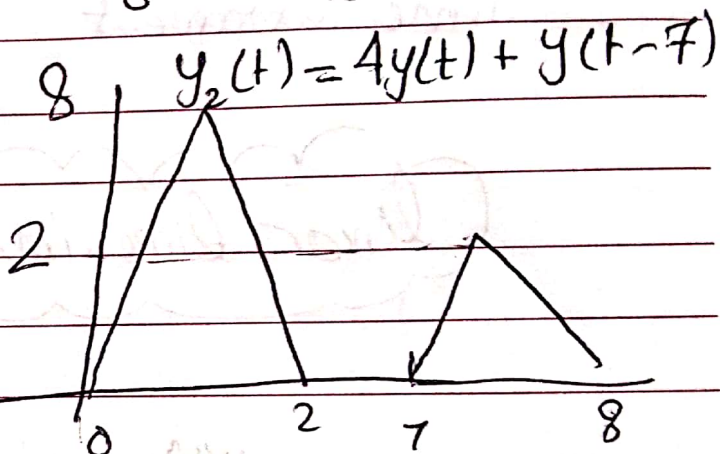 8 y₂(t) = 4y(t) + y(t-7)
2
0 2 7 8